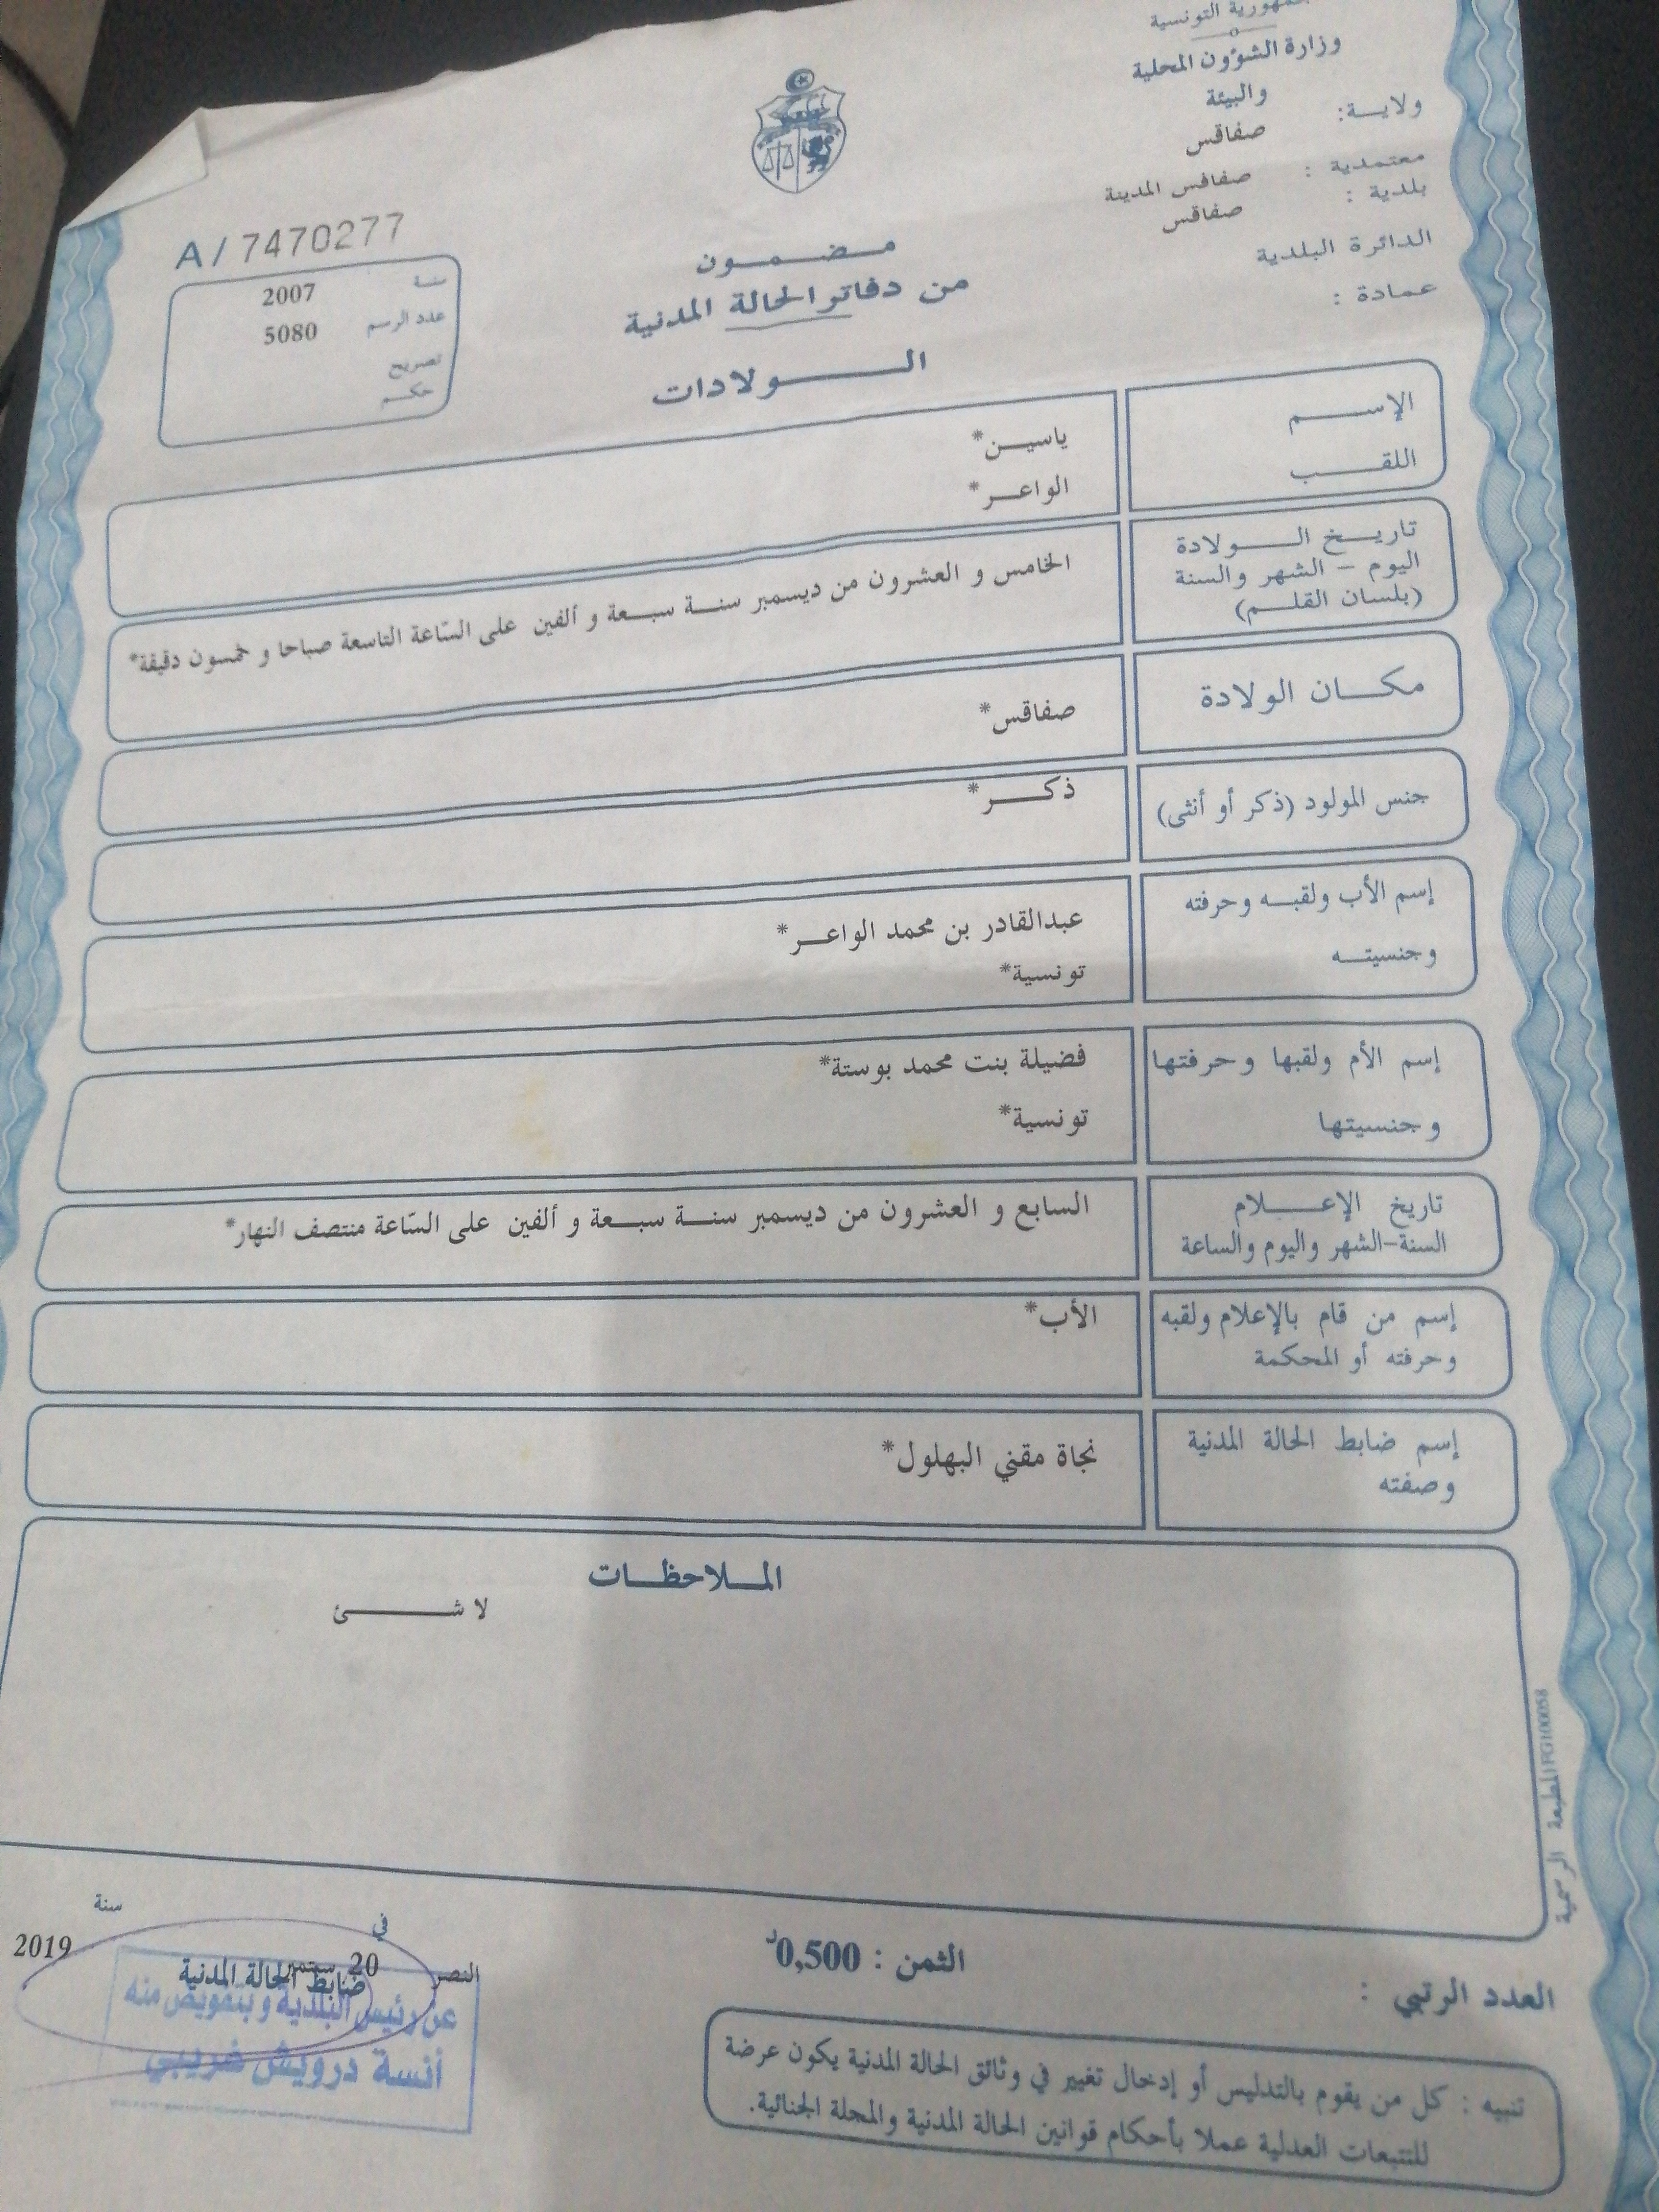 جمهورية التونسية
وزارة الشؤون المحلية
والبيئة
ولايـــة: صفاقس
معتمدية : صفاقس المدينة
بلدية : صفاقس
الدائرة البلدية
عمادة :
A/7470277
سنة 2007
عدد الرسم 5080
تصريح
حكم
مضمون
من دفاتر الحالة المدنية
الولادات
الإسم ياسين*
اللقب الواعر*
تاريخ الولادة
اليوم – الشهر والسنة
(بلسان القلم)
الخامس و العشرون من ديسمبر سنة سبعة و ألفين على السّاعة التاسعة صباحا و خمسون دقيقة*
مكان الولادة صفاقس*
جنس المولود (ذكر أو أنثى) ذكر*
إسم الأب ولقبه وحرفته عبدالقادر بن محمد الواعر*
وجنسيته تونسية*
إسم الأم ولقبها وحرفتها فضيلة بنت محمد بوستة*
وجنسيتها تونسية*
تاريخ الإعلام
السنة-الشهر واليوم والساعة
السابع و العشرون من ديسمبر سنة سبعة و ألفين على السّاعة منتصف النهار*
إسم من قام بالإعلام ولقبه الأب*
وحرفته أو المحكمة
إسم ضابط الحالة المدنية نجاة مقني البهلول*
وصفته
الملاحظات
لا شئ
المطبعة الرسمية
العدد الرتبي :
الثمن : 0,500د
في سنة
النصر 20 سبتمبر 2019
ضابط الحالة المدنية
عن رئيس البلدية و بتفويض منه
أنسة درويش غريبي
تنبيه : كل من يقوم بالتدليس أو إدخال تغيير في وثائق الحالة المدنية يكون عرضة
للتتبعات العدلية عملا بأحكام قوانين الحالة المدنية والمجلة الجنائية.